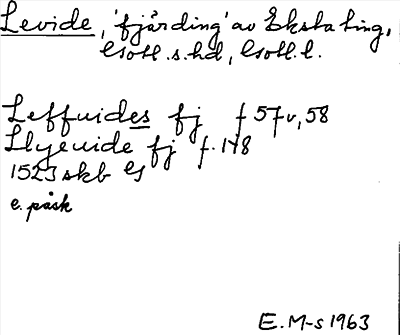 Levide, 'fjärding' av Eksta ting,
Gotl. s. hd, Gotl. l.
Leffuides fj f 57v, 58
Llyeuide fj f. 118
1523 skb GJ
e. påsk
E. M-s 1963